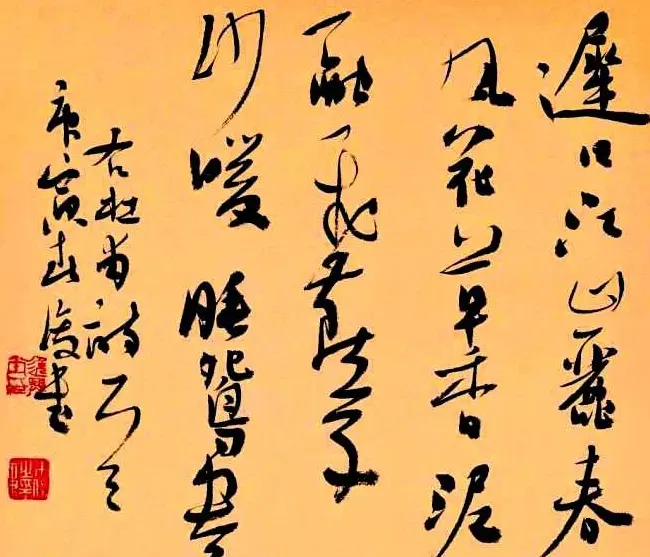 遲日江山麗春
風花草香泥
融飛燕子
沙暖睡鴛鴦
右杜甫詩
庚寅春書